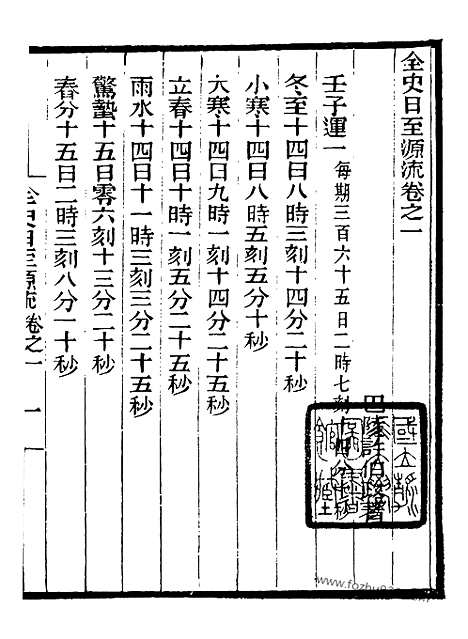 全史日至源流卷之一
巴陵許伯政著
壬子運一 每期三百六十五日二時七刻十四分
冬至十四日八時一刻四分二十秒
小寒十四日八時五刻五分十秒
大寒十四日九時一刻十四分二十五秒
立春十四日十時一刻五分二十五秒
雨水十四日十一時三刻三分二十五秒
驚蟄十五日零六刻十三分二十秒
春分十五日二時三刻八分一十秒
全史日至源流 卷之一 一